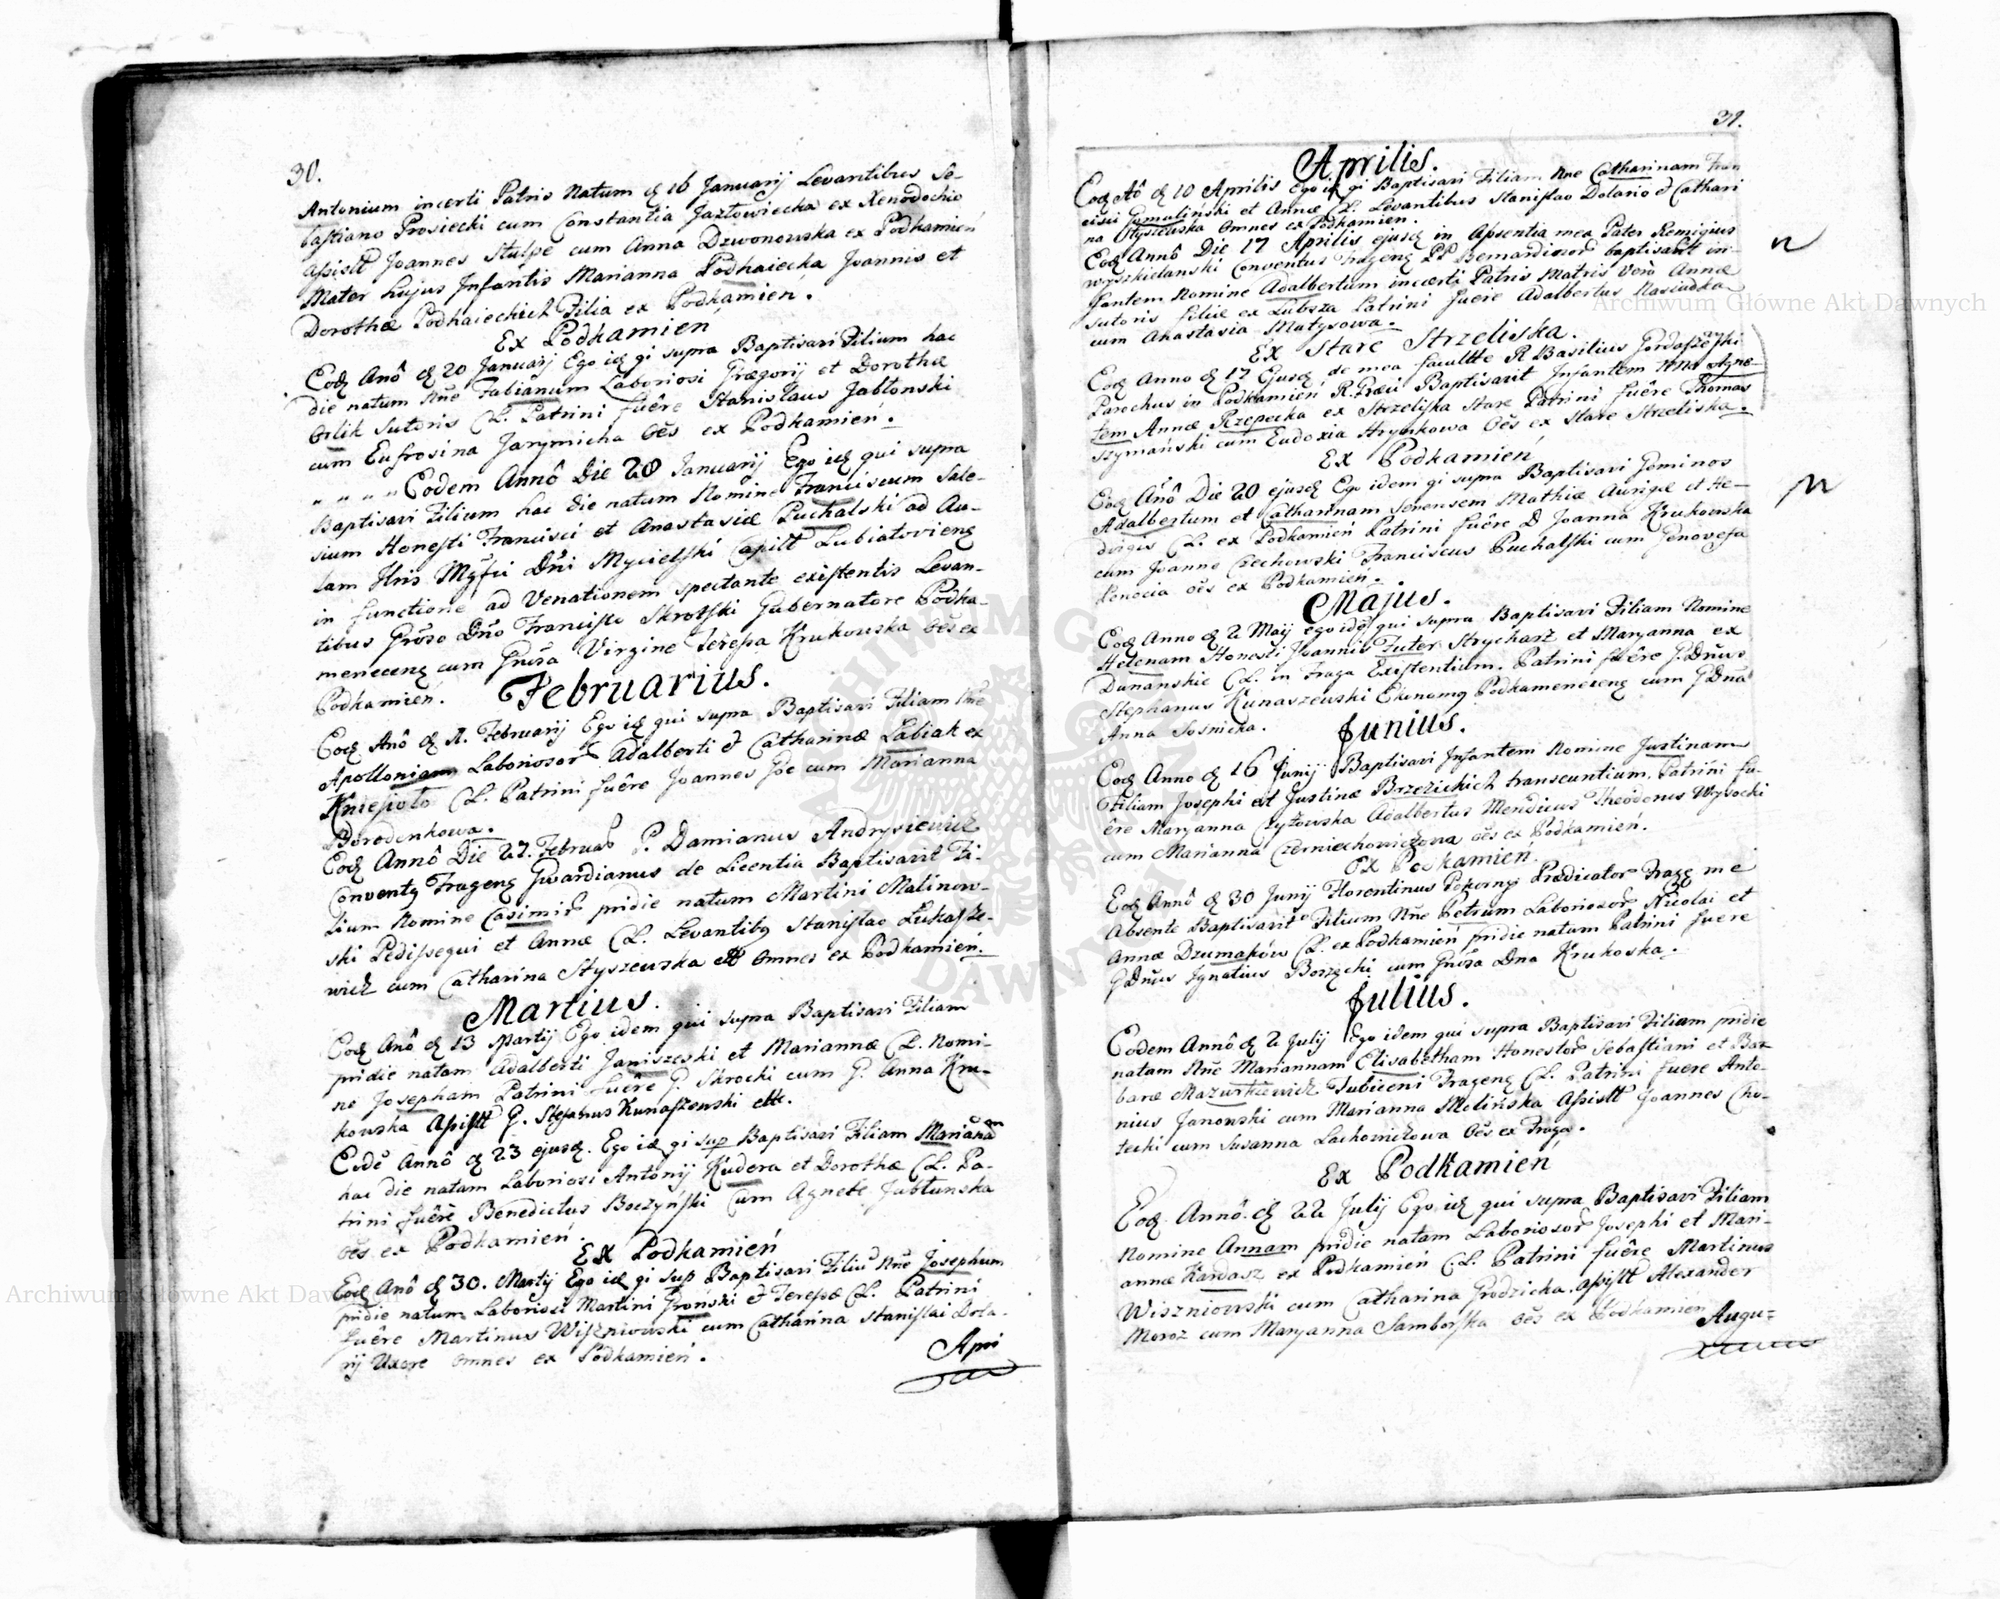 30.
Antonium incerti Patris natum d 16 Januarij Levantibus Se-
bastiano Prosiecki cum Constantia Jazłowiecka ex Xenodochio
assistt Joannes Stulpe cum Anna Dzwonowska ex Podkamień
Mater hujus Infantis Marianna Podhaiecka Joannis et
Dorothæ Podhaieckich Filia ex Podkamień.
Ex Podkamień
Eod Anô d 20 Januarij Ego id qi supra Baptisavi Filium hac
die natum Nñe Fabianum Laboriosi Græegorij et Dorothæ
Orlik Sutoris C.L. Patrini fuêre Stanislaus Jabłonski
cum Eufrosina Jarymicha oẽs ex Podkamień.
" " " " Eodem Annô Die 28 Januarij Ego id qui supra
Baptisavi Filium hac die natum Nomine Franciscum Sale-
sium Honesti Francisci et Anastasiæ Puchalski ad Au-
lam Illris Mgfci Dñi Mycielski Capitt Lubiatoviens
in functione ad Venationem spectante existentis Levan-
tibus Grõso Dño Francisco Skrotski Gubernatore Podka-
meneceng cum Grõsa Virgine Teressa Krukowska oẽs ex
Podkamień.
Februarius.
Eod Anô d 11. Februarij Ego id qui supra Baptisavi Filiam Nñe
Apolloniam Laboriosor Adalberti & Catharinæ Labiak ex
Kniesioło C.L. Patrini fuêre Joannes Joe cum Marianna
Borodenkowa.
Eod Annô Die 27. Februar P. Damianus Andrysiewicz
Conventq Frageng Gwardianus de Licentia Baptisavit Fi-
lium Nomine Casimir pridie natum Martini Malinow-
ski Pedissequi et Annæ C.L. Levantibq Stanislao Łukasze-
wicz cum Catharina Styszewska omnes ex Podkamień.
Martius.
Eod Anô d 13 Martij Ego idem qui supra Baptisavi Filiam
pridie natam Adalberti Janiszeski et Mariannæ C.L. Nomi-
ne Josepham Patrini fuêre G. Skrocki cum G. Anna Kru-
kowska Assistt G. Stefanus Kunaszewski ett.
Eodẽ Annô d 23 ejusd. Ego id qi sup Baptisavi Filiam Marianã
hac die natam Laboriosi Antonij Kudera et Dorothæ C.L. Pa-
trini fuêre Benedictus Boczyński cum Agnete Jabłunska
oẽs ex Podkamień.
Ex Podkamień
Eod Anô d 30. Martij Ego id qi sup Baptisavi Filiũ Nñe Josephum
pridie natum Laboriosi Martini Groński & Teressæ C.L. Patrini
fuêre Martinus Wiszniowski cum Catharina Stanislai Dola-
rij Uxore omnes ex Podkamień.
Apri
31.
Aprilis.
Eod Aô d 10 Aprilis Ego id qi Baptisavi Filiam Nñe Catharinam Fran
cisci Gomuliński et Annæ C.L. Levantibus Stanislao Dolario & Cathari
na Styszewska omnes ex Podkamień.
Eod Annô Die 17 Aprilis ejusd in Absentia mea Pater Remigius
Wyszkielanski Conventus Frageng PP Bernardinor baptisavit in-
fantem Nomine Adalbertum incerti Patris Matris Verò Annæ
Sutoris filiæ ex Lubsza Patrini fuere Adalbertus Nasiadka
cum Anastasia Matysowa.
Ex Stare Strzeliska.
Eod Anno d 17 Ejusd de mea facultte R Basilius Gordaszeẅski
Parochus in Podkamień R. Græci Baptisavit Infantem Nñe Agne-
tem Annæ Rzepecka ex Strzeliska Stare Patrini fuêre Thomas
Szymański cum Eudoxia Hrynkowa oẽs ex Stare Strzeliska.
Ex Podkamień
Eod Añô Die 20 ejusd Ego idem qi supra Baptisavi Geminos
Adalbertum et Catharinam Serensem Mathiæ Aurigæ et He-
dvigis C.L. ex Podkamień Patrini fuêre D Joanna Krukowska
cum Joanne Czechowski Franciscus Puchalski cum Genovefa
oẽs ex Podkamień.
Majus.
Eod Anno d 2 Maij ego idẽ qui supra Baptisavi Filiam Nomine
Helenam Honesti Joannis Futer Strycharz et Maryanna ex
Dunanskie C.L. in Fraga Existentium. Patrini fuêre G. Dñus
Stephanus Kunaszewski Ekonomq Podkameneceng cum G Dña
Anna Sosnicka.
Junius.
Eod Anno d 16 Junij Baptisavi Infantem Nomine Justinam
Filiam Josephi et Justinæ Brzezickich transeuntium. Patrini fu-
êre Maryanna Czyżowska Adalbertus Mendicus Theodorus Wysocki
cum Marianna Czerniechowiczowa oẽs ex Podkamień.
Ex Podkamień.
Eod Annô d 30 Junij Florentinus Pokorny Prædicator Frage me
Absente Baptisavit Filium Nñe Petrum Laboriosor Nicolai et
Annæ Dzumaków C.L. ex Podkamień pridie natum Patrini fuere
G Dñus Ignatius Borzęcki cum Grõsa Dna Krukoska.
Julius.
Eodem Annô d 2 Julij Ego idem qui supra Baptisavi Filiam pridie
natam Nñe Mariannam Elisabetham Honestor Sebastiani et Bar
baræ Mazurkiewicz Tubiceni Frageng C.L. Patrini fuere Anto-
nius Janowski cum Marianna Moliñska Assistt Joannes Cho-
tecki cum Susanna Lachowiczowa oẽs ex Fraga.
Ex Podkamień
Eod Annô d 22 Julij Ego id qui supra Baptisavi Filiam
Nomine Annam pridie natam Laboriosor Josephi et Mari-
annæ Kardasz ex Podkamień C.L. Patrini fuêre Martinus
Wiszniowski cum Catharina Grodzicka. Assistt Alexander
Moroz cum Maryanna Samborska oẽs ex Podkamień
Augu-
Archiwum Główne Akt Dawnych
Archiwum Główne Akt Dawnych